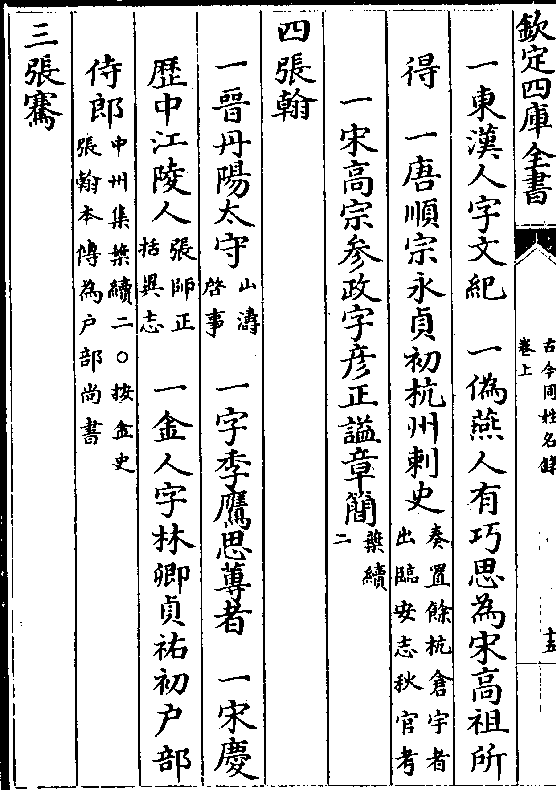 欽定四庫全書
古今同姓名錄
卷上
十五
一東漢人字文紀　一偽燕人有巧思為宋高祖所
得　一唐順宗永貞初杭州刺史奏置餘杭倉宇者
出臨安志秋官考
一宋高宗参政字彦正謚章簡葉續
二
四張翰
一晉丹陽太守山濤
啓事　一字季鷹思蓴者　一宋慶
歴中江陵人張師正
括異志　一金人字林卿貞祐初户部
侍郎中州集葉續二○按金史
張翰本傳為户部尚書
三張騫